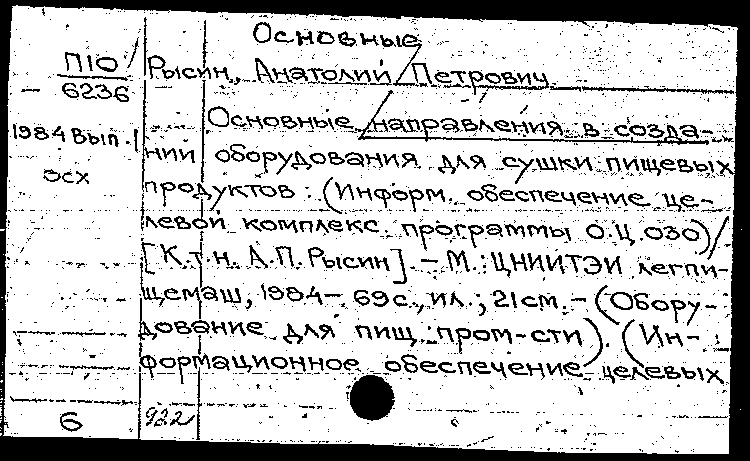 Основные
П10
6236
Рысин, Анатолий Петрович
Основные направления в созда-
1984 Вып. 1
нии оборудования для сушки пищевых
осх
продуктов: (Информ. обеспечение це-
левой комплекс. программы О.Ц. 030)/
[К.т.н. А.П. Рысин]. – М.: ЦНИИТЭИ легпи-
щемаш, 1984 – 69 с., ил.; 21 см. – (Обору-
дование для пищ. пром-сти). (Ин-
формационное обеспечение целевых
6
922